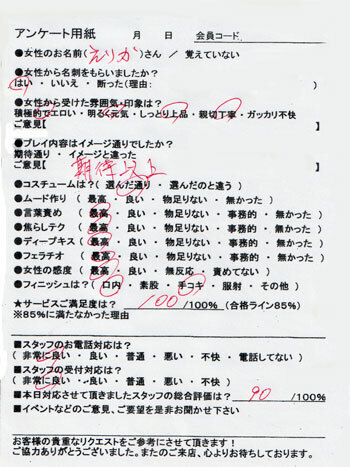 アンケート用紙　　月　　日　会員コード.
●女性のお名前（えりか）さん ／ 覚えていない
●女性から名刺をもらいましたか？
はい ・ いいえ ・ 断った（理由:　　）
●女性から受けた雰囲気・印象は？
積極的でエロい ・ 明るく元気 ・ しっとり上品 ・ 親切丁寧 ・ ガッカリ不快
ご意見【　　】
●プレイ内容はイメージ通りでしたか？
期待通り ・ イメージと違った
ご意見【　期待以上　】
●コスチュームは？（ 選んだ通り ・ 選んだのと違う ）
●ムード作り （ 最高 ・ 良い ・ 物足りない ・ 無かった ）
●言葉責め （ 最高 ・ 良い ・ 物足りない ・ 事務的 ・ 無かった ）
●焦らしテク （ 最高 ・ 良い ・ 物足りない ・ 事務的 ・ 無かった ）
●ディープキス（ 最高 ・ 良い ・ 物足りない ・ 事務的 ・ 無かった ）
●フェラチオ （ 最高 ・ 良い ・ 物足りない ・ 事務的 ・ 無かった ）
●女性の感度 （ 最高 ・ 良い ・ 無反応 ・ 責めてない ）
●フィニッシュは？（ 口内 ・ 素股 ・ 手コキ ・ 服射 ・ その他 ）
★サービスご満足度は？　100　/100% （合格ライン85%）
※85%に満たなかった理由
■スタッフのお電話対応は？
（ 非常に良い ・ 良い ・ 普通 ・ 悪い ・ 不快 ・ 電話してない ）
■スタッフの受付対応は？
（ 非常に良い ・ 良い ・ 普通 ・ 悪い ・ 不快 ）
■本日対応させて頂きましたスタッフの総合評価は？　90　/100%
■イベントなどのご意見、ご要望を是非お聞かせ下さい
お客様の貴重なリクエストをご参考にさせて頂きます！
ご協力ありがとうございました。またのご来店、心よりお待ちしております。